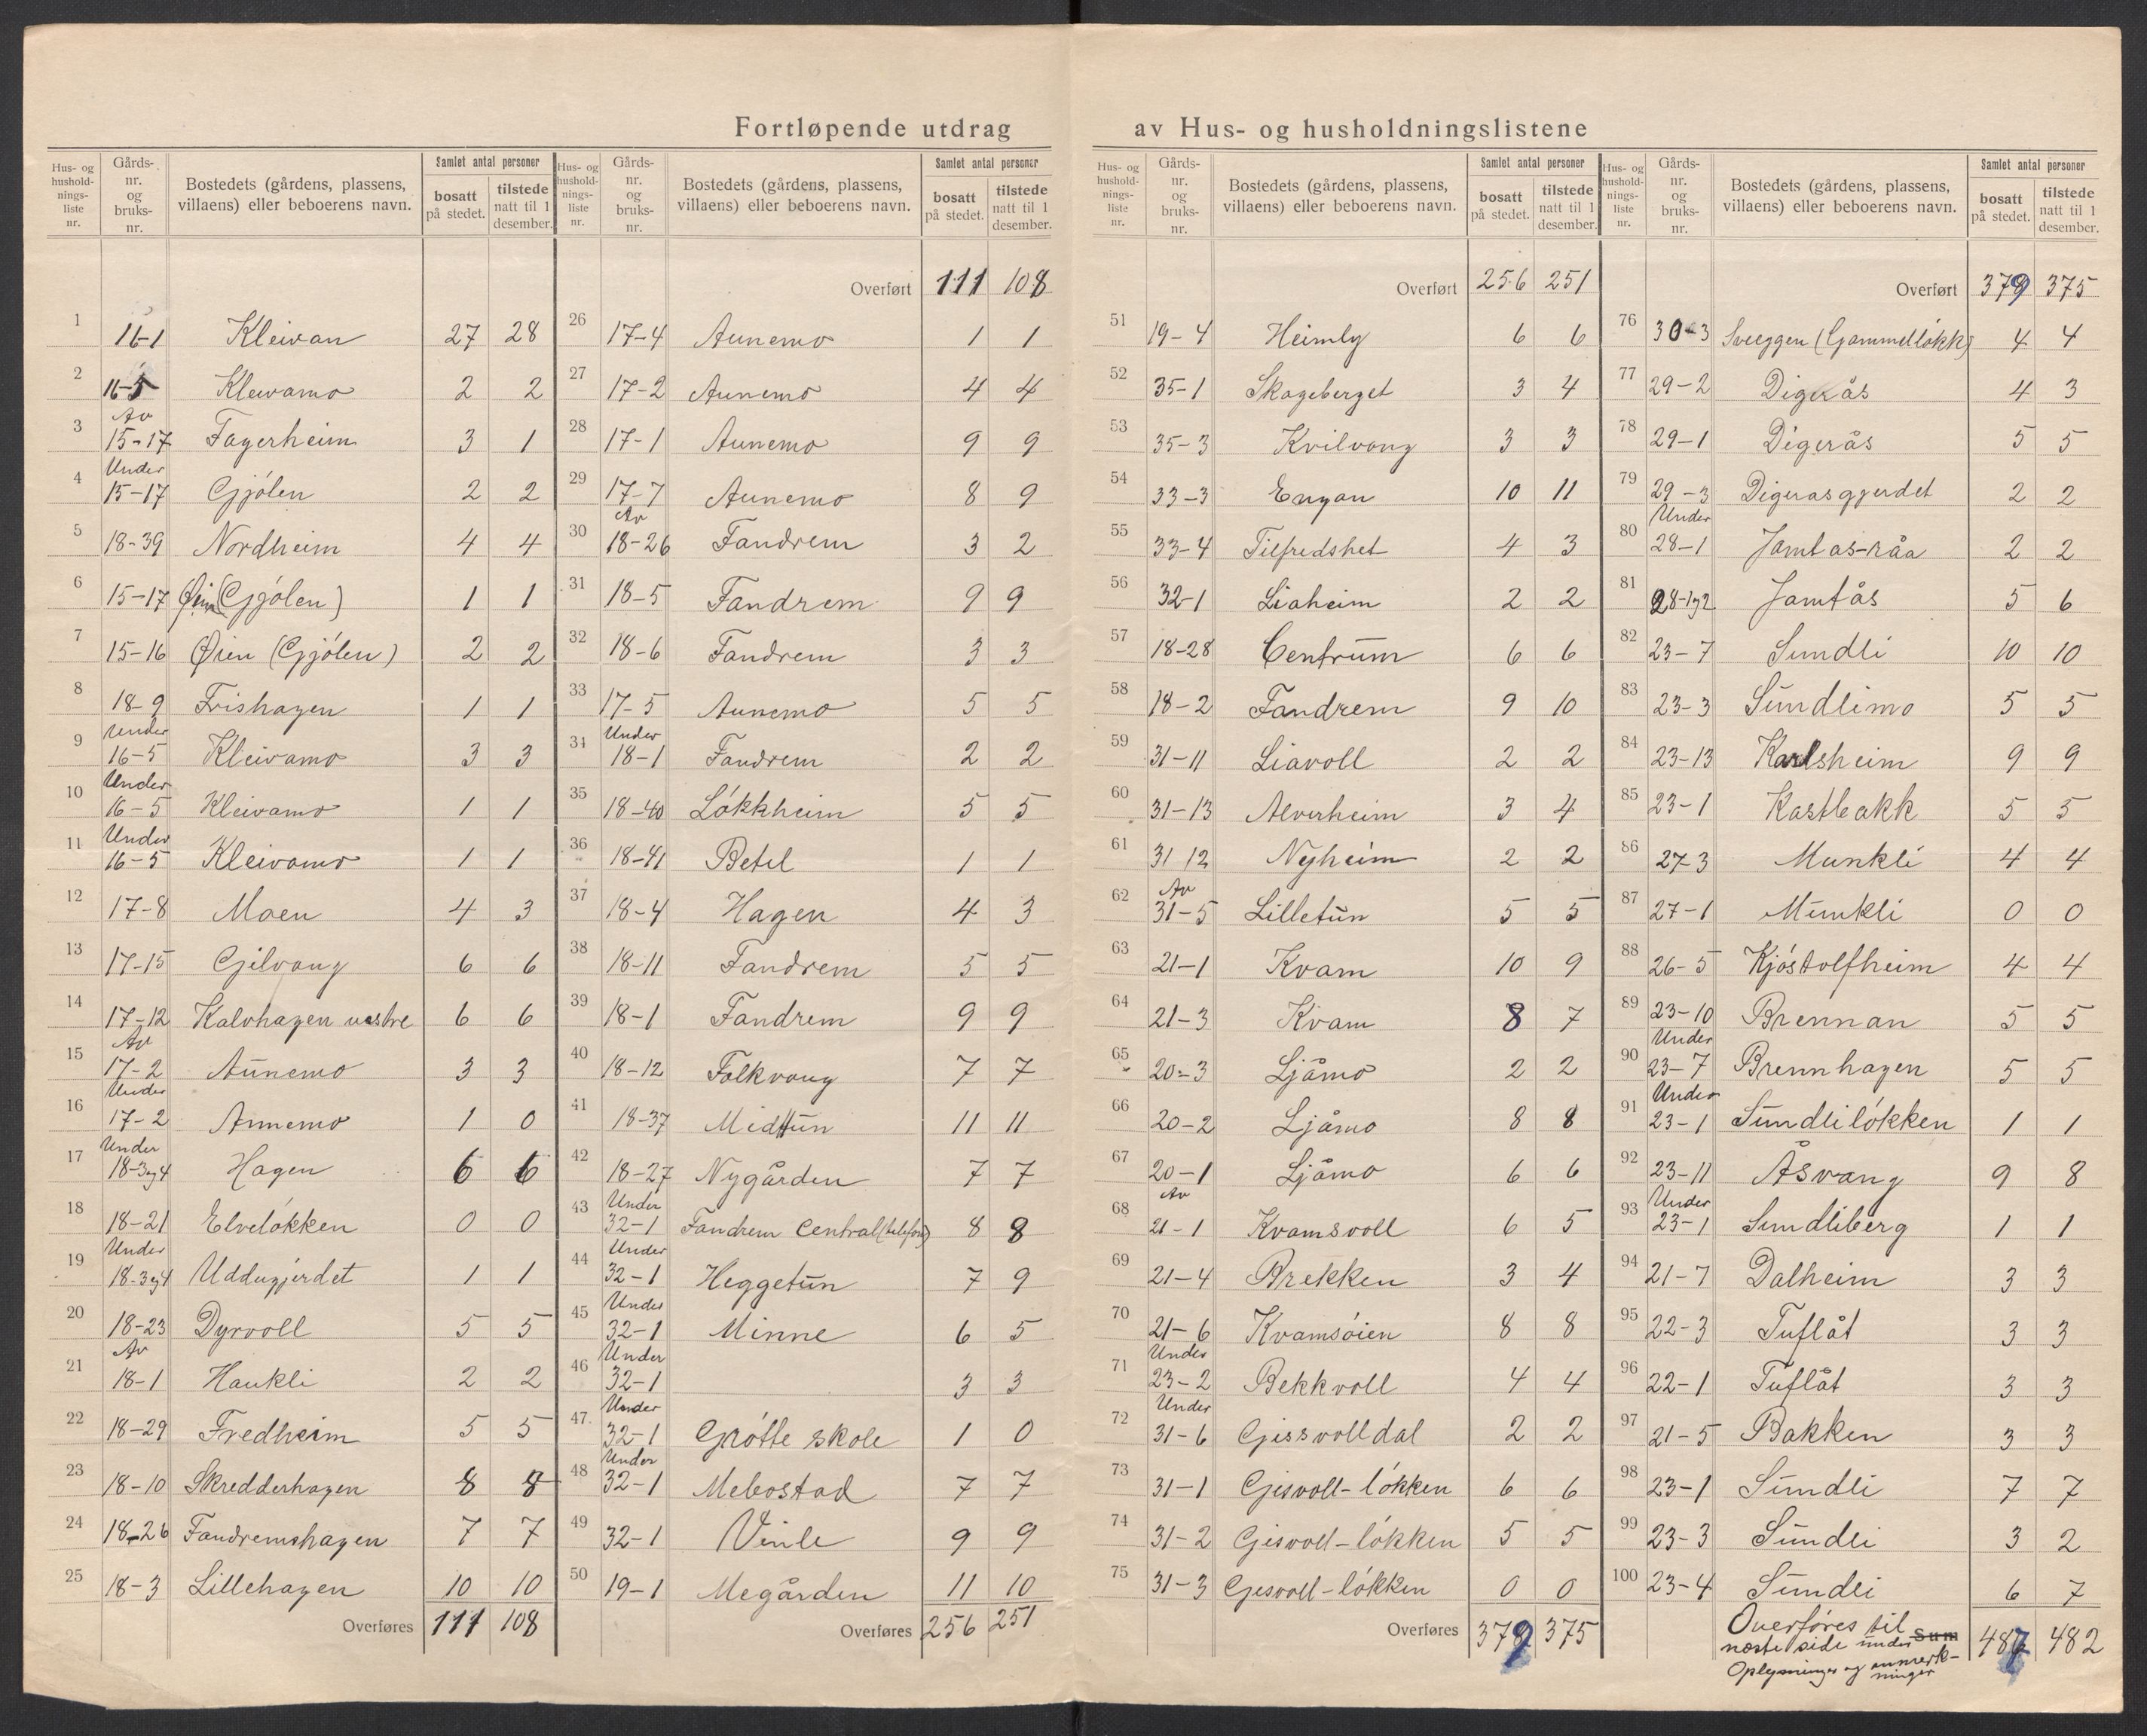 Fortløpende utdrag av Hus- og husholdningslistene
Hus- og husholdnings-liste nr. Gårds-nr. og bruks-nr. Bostedets (gårdens, plassens, villaens) eller beboerens navn. Samlet antal personer bosatt på stedet. tilstede natt til 1 desember.
1 16-1 Kleivan 27 28
2 16-5 Kleivamo 2 2
3 Av 15-17 Fagerheim 3 1
4 Under 15-17 Gjølen 2 2
5 18-39 Nordheim 4 4
6 15-17 Øien (Gjølen) 1 1
7 15-16 Øien (Gjølen) 2 2
8 18-9 Frishagen 1 1
9 Under 16-5 Kleivamo 3 3
10 Under 16-5 Kleivamo 1 1
11 Under 16-5 Kleivamo 1 1
12 17-8 Moen 4 3
13 17-15 Gilvang 6 6
14 17-12 Kalvhagen vestre 6 6
15 Av 17-2 Aunemo 3 3
16 Under 17-2 Aunemo 1 0
17 Under 18-3og4 Hagen 6 6
18 18-21 Elveløkken 0 0
19 Under 18-3og4 Uddugjerdet 1 1
20 18-23 Dyrvoll 5 5
21 Av 18-1 Haukli 2 2
22 18-29 Fredheim 5 5
23 18-10 Skredderhagen 8 8
24 18-26 Fandremshagen 7 7
25 18-3 Lillehagen 10 10
Overføres 111 108
Hus- og husholdnings-liste nr. Gårds-nr. og bruks-nr. Bostedets (gårdens, plassens, villaens) eller beboerens navn. Samlet antal personer bosatt på stedet. tilstede natt til 1 desember.
Overført 111 108
26 17-4 Aunemo 1 1
27 17-2 Aunemo 4 4
28 17-1 Aunemo 9 9
29 17-7 Aunemo 8 9
30 Av 18-26 Fandrem 3 2
31 18-5 Fandrem 9 9
32 18-6 Fandrem 3 3
33 17-5 Aunemo 5 5
34 Under 18-1 Fandrem 2 2
35 18-40 Løkkheim 5 5
36 18-41 Betel 1 1
37 18-4 Hagen 4 3
38 18-11 Fandrem 5 5
39 18-1 Fandrem 9 9
40 18-12 Folkvang 7 7
41 18-37 Midttun 11 11
42 18-27 Nygården 7 7
43 Under 32-1 Fandrem Central (telefon) 8 8
44 Under 32-1 Heggetun 7 9
45 Under 32-1 Minne 6 5
46 Under 32-1 3 3
47. Under 32-1 Grøtte skole 1 0
48 Under 32-1 Mebostad 7 7
49 32-1 Vinle 9 9
50 19-1 Megården 11 10
Overføres 256 251
Hus- og husholdnings-liste nr. Gårds-nr. og bruks-nr. Bostedets (gårdens, plassens, villaens) eller beboerens navn. Samlet antal personer bosatt på stedet. tilstede natt til 1 desember.
Overført 256 251
51 19-4 Heimly 6 6
52 35-1 Skogeberget 3 4
53 35-3 Kvilvang 3 3
54 33-3 Engan 10 11
55 33-4 Tilfredshet 4 3
56 32-1 Liaheim 2 2
57 18-28 Centrum 6 6
58 18-2 Fandrem 9 10
59 31-11 Liavoll 2 2
60 31-13 Alverheim 3 4
61 31 12 Nyheim 2 2
62 Av 31-5 Lilletun 5 5
63 21-1 Kvam 10 9
64 21-3 Kvam 8 7
65 20-3 Ljåmo 2 2
66 20-2 Ljåmo 8 8
67 20-1 Ljåmo 6 6
68 Av 21-1 Kvamsvoll 6 5
69 21-4 Brekken 3 4
70 21-6 Kvamsøien 8 8
71 Under 23-2 Bekkvoll 4 4
72 Under 31-6 Gissvolldal 2 2
73 31-1 Gisvoll-løkken 6 6
74 31-2 Gisvoll-løkken 5 5
75 31-3 Gisvoll-løkken 0 0
Overføres 379 375
Hus- og husholdnings-liste nr. Gårds-nr. og bruks-nr. Bostedets (gårdens, plassens, villaens) eller beboerens navn. Samlet antal personer bosatt på stedet. tilstede natt til 1 desember.
Overført 379 375
76 30-3 Sveggen (Gammelløkk) 4 4
77 29-2 Digerås 4 3
78 29-1 Digerås 5 5
79 29-3 Digerasgjerdet 2 2
80 Under 28-1 Jamtas-råa 2 2
81 28-1og2 Jamtås 5 6
82 23-7 Sundli 10 10
83 23-3 Sundlimo 5 5
84 23-13 Karlsheim 9 9
85 23-1 Kastbakk 5 5
86 27-3 Munkli 4 4
87 27-1 Munkli 0 0
88 26-5 Kjøstolfheim 4 4
89 23-10 Brennan 5 5
90 Under 23-7 Brennhagen 5 5
91 Under 23-1 Sundliløkken 1 1
92 23-11 Åsvang 9 8
93 Under 23-1 Sundliberg 1 1
94 21-7 Dalheim 3 3
95 22-3 Tuflåt 3 3
96 22-1 Tuflåt 3 3
97 21-5 Bakken 3 3
98 23-1 Sundli 7 7
99 23-3 Sundli 3 2
100 23-4 Sundli 6 7
Overføres til Sum 487 482
næste side under
Oplysninger og anmerk-
ninger